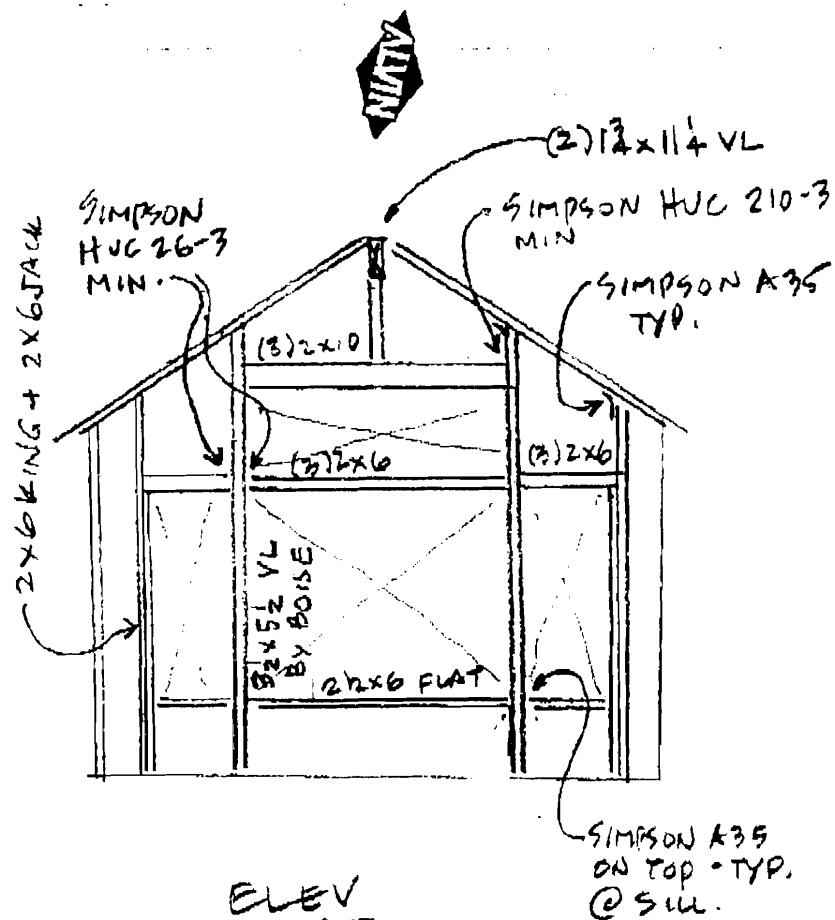 ALVIN
(2) 1 3/4 x 11 1/4 VL
SIMPSON
HUC 26-3
MIN.
SIMPSON HUC 210-3
MIN
SIMPSON A35
TYP.
2x6 KING + 2x6 JACK
(3) 2x10
(3) 2x6
(3) 2x6
3 1/2 x 5 1/2 VL
BY BOISE
2x6 FLAT
SIMPSON A35
ON TOP • TYP.
@ SILL.
ELEV